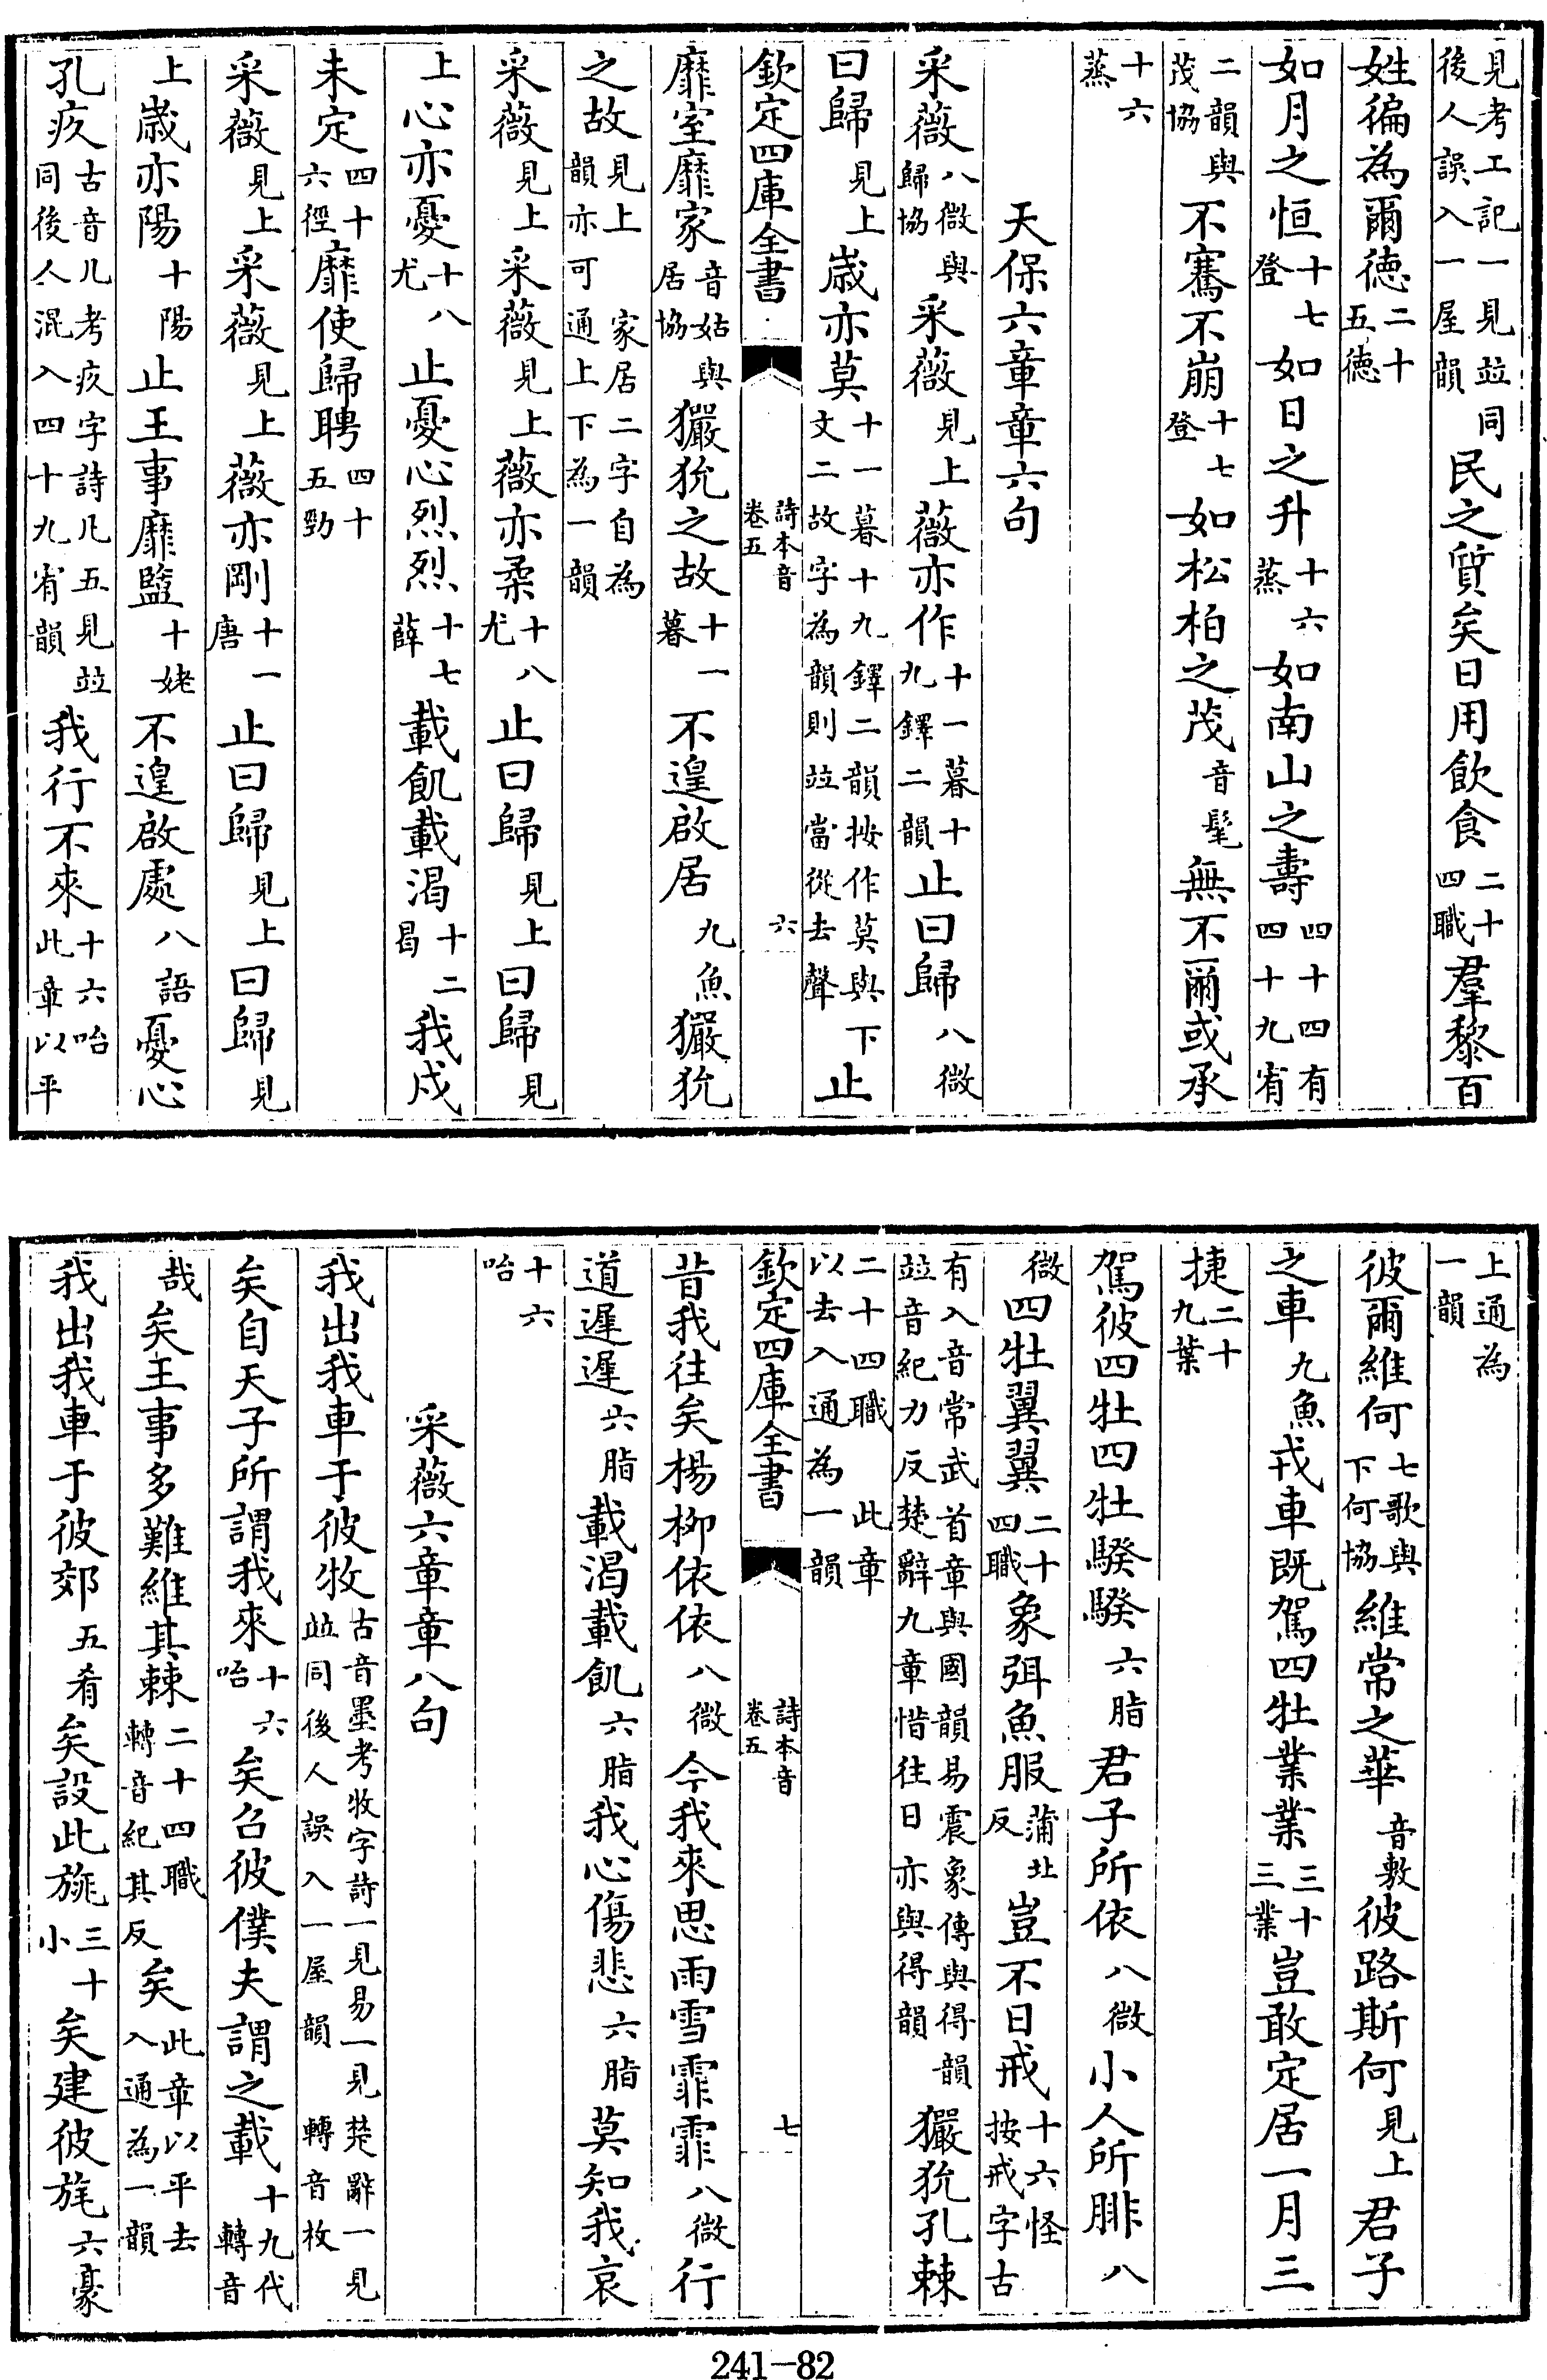 見考工記一見竝同後人誤入一屋韻民之質矣日用飲食二十四職羣黎百
姓徧為爾德二十五德
如月之恒十七登如日之升十六蒸如南山之壽四十四有四十九宥
二韻與茂協不騫不崩十七登如松柏之茂音髦無不爾或承
十六蒸
天保六章章六句
采薇八微與歸協采薇見上薇亦作十一暮十九鐸二韻止曰歸八微
曰歸見上歲亦莫十一暮十九鐸二韻按作莫與下文二故字為韻則竝當從去聲止
欽定四庫全書 詩本音卷五 六
靡室靡家音姑與居協玁狁之故十一暮不遑啟居九魚玁狁
之故見上 家居二字自為韻亦可通上下為一韻
采薇見上采薇見上薇亦柔十八尤止曰歸見上曰歸見
上心亦憂十八尤止憂心烈烈十七薛載飢載渴十二曷我戍
未定四十六徑靡使歸聘四十五勁
采薇見上采薇見上薇亦剛十一唐止曰歸見上曰歸見
上歲亦陽十陽止王事靡盬十姥不遑啟處八語憂心
孔疚古音几考疚字詩凡五見竝同後人混入四十九宥韻我行不來十六咍此章以平
上通為一韻
彼爾維何七歌與下何協維常之華音敷彼路斯何見上君子
之車九魚戎車既駕四牡業業三十三業豈敢定居一月三
捷二十九葉
駕彼四牡四牡騤騤六脂君子所依八微小人所腓八
微四牡翼翼二十四職象弭魚服蒲北反豈不日戒十六怪按戒字古
有入音常武首章與國韻易震象傳與得韻竝音紀力反楚辭九章惜往日亦與得韻玁狁孔棘
二十四職 此章以去入通為一韻
欽定四庫全書 詩本音卷五 七
昔我往矣楊柳依依八微今我來思雨雪霏霏八微行
道遲遲六脂載渴載飢六脂我心傷悲六脂莫知我哀
十六咍
采薇六章章八句
我出我車于彼牧古音墨考牧字詩一見易一見楚辭一見竝同後人誤入一屋韻 轉音枚
矣自天子所謂我來十六咍矣召彼僕夫謂之載十九代轉音
哉矣王事多難維其棘二十四職轉音紀其反矣此章以平去入通為一韻
我出我車于彼郊五肴矣設此旐三十小矣建彼旄六豪
241-82